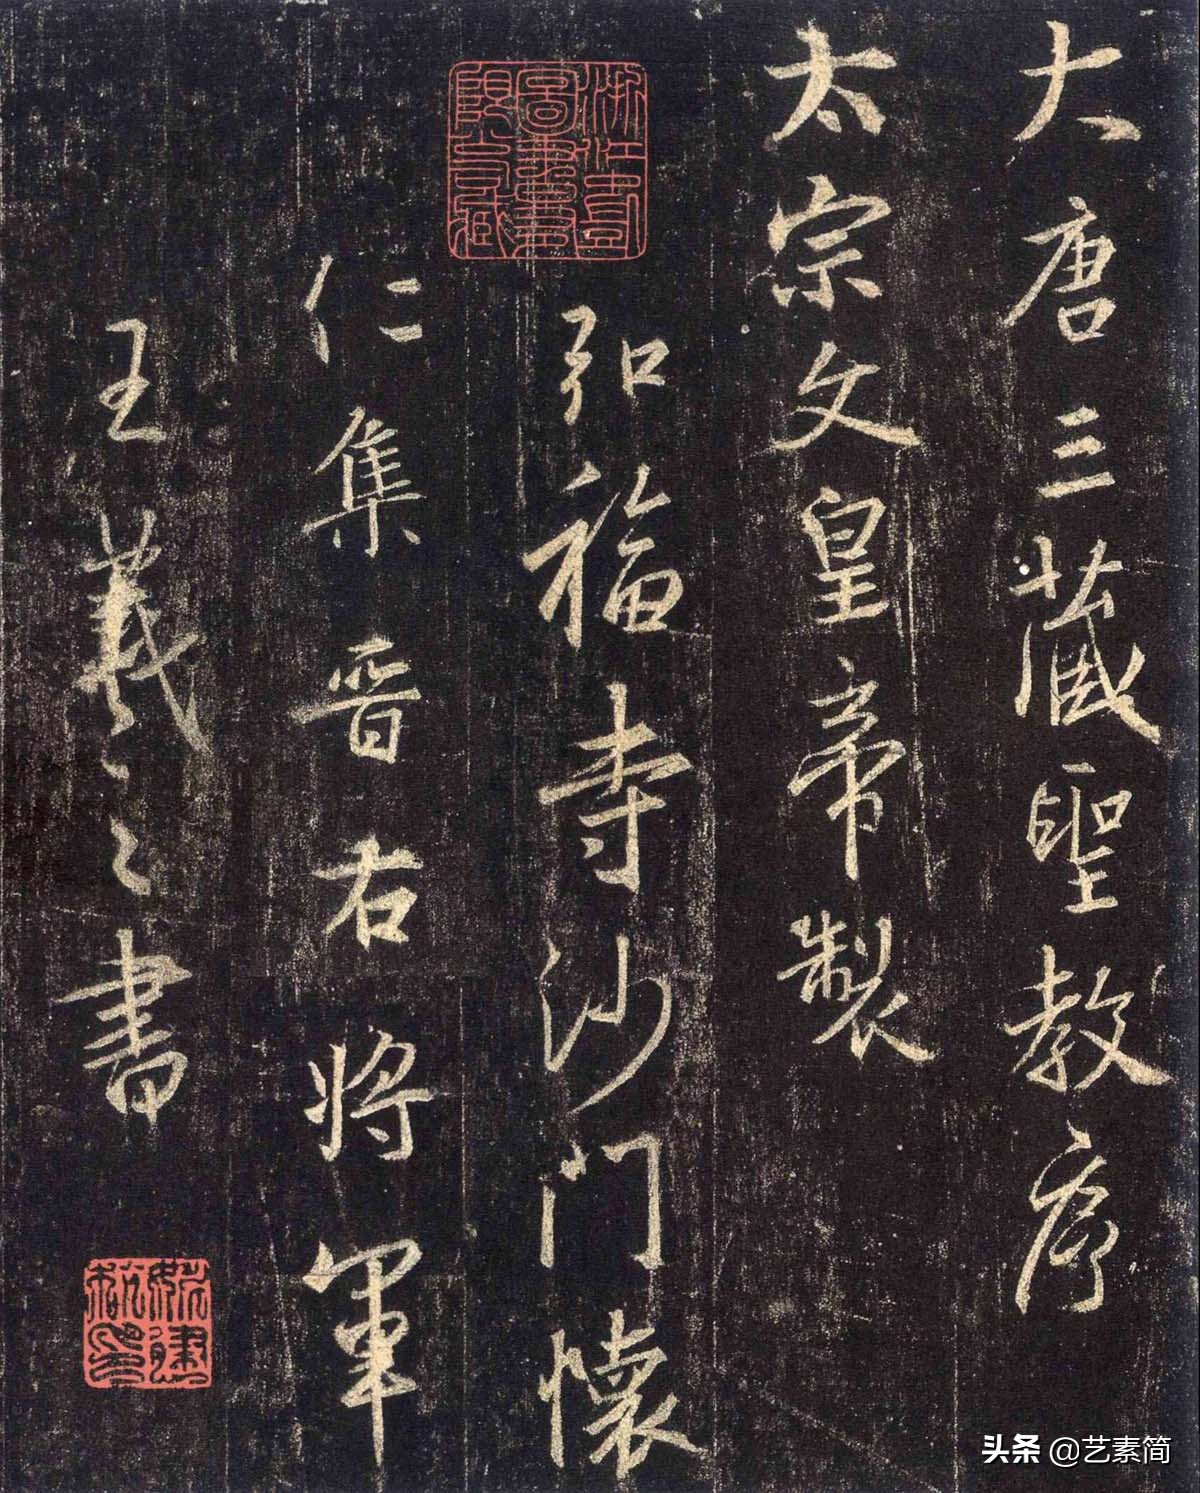 大唐三藏聖教序
太宗文皇帝製
弘福寺沙門懷
仁集晉右將軍
王羲之書
头条 @艺素简